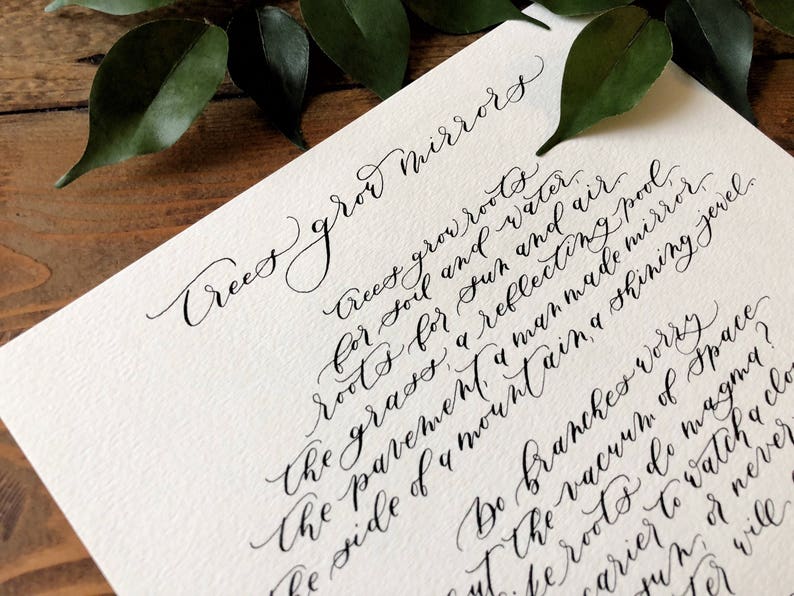 trees grow mirrors
trees grow roots
for soil and water,
roots for sun and air.
the grass, a reflecting pool,
the pavement, a man made mirror,
the side of a mountain, a shining jewel.
Do branches worry
out the vacuum of space
ke roots do magma?
carier to watch a clo
sun, or never
will